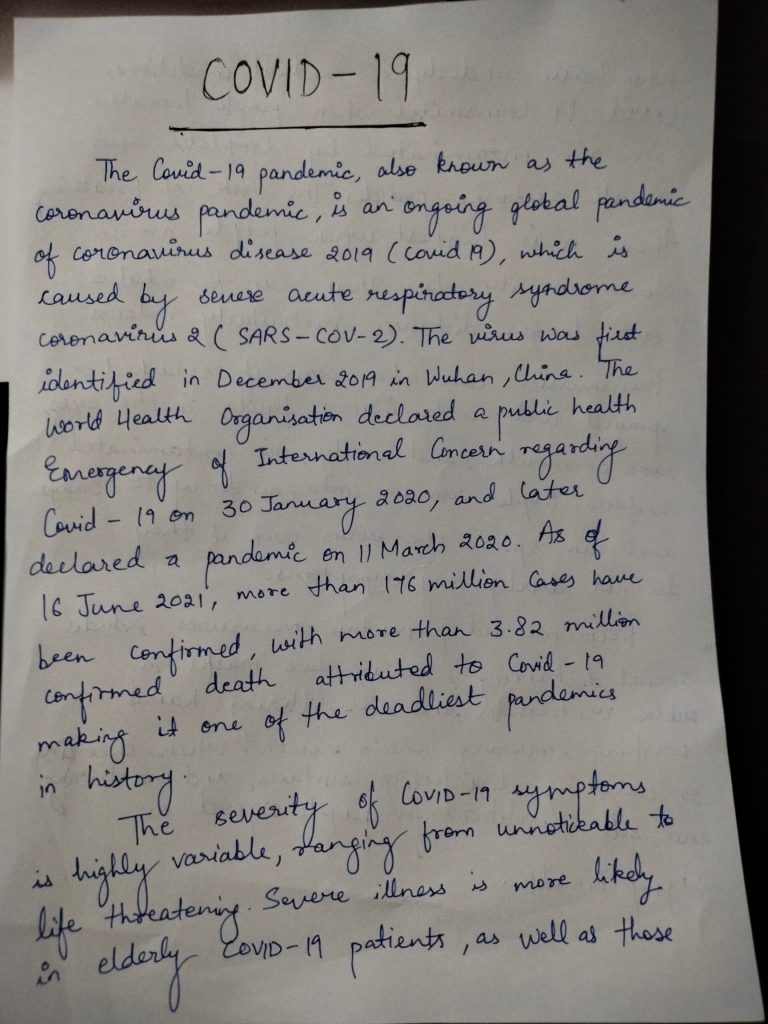 COVID-19
The Covid-19 pandemic, also known as the
coronavirus pandemic, is an ongoing global pandemic
of coronavirus disease 2019 (Covid 19), which is
caused by severe acute respiratory syndrome
coronavirus 2 ( SARS-COV-2). The virus was first
identified in December 2019 in Wuhan, China. The
World Health Organisation declared a public health
Emergency of International Concern regarding
Covid - 19 on 30 January 2020, and later
declared a pandemic on 11 March 2020. As of
16 June 2021, more than 176 million cases have
been confirmed, with more than 3.82 million
confirmed death attributed to Covid - 19
making it one of the deadliest pandemics
in history.
The severity of COVID-19 symptoms
is highly variable, ranging from unnoticeable to
life threatening. Severe illness is more likely
in elderly COVID-19 patients, as well as those